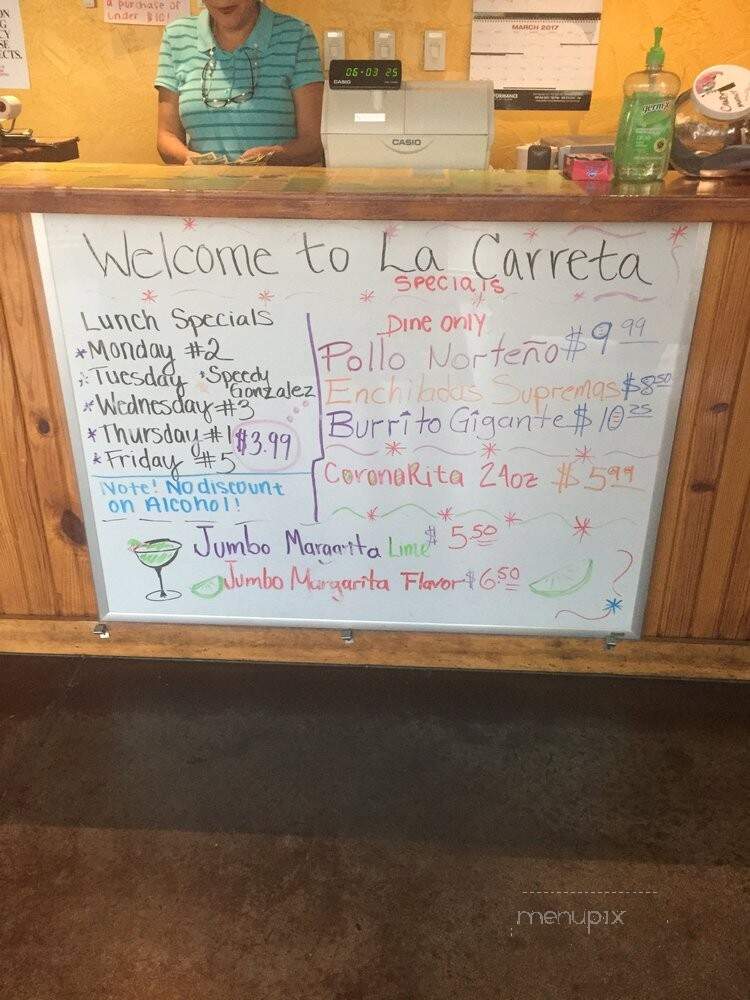 a purchase of
under $10!
MARCH 2017
06-03 25
CASIO
CASIO
germ-x
Welcome to La Carreta
Specials
Lunch Specials
*Monday #2
*Tuesday *Speedy Gonzalez
*Wednesday #3
*Thursday #1
*Friday #5
$3.99
Note! No discount
on Alcohol!
Dine only
Pollo Norteño $9.99
Enchiladas Supremas $8.50
Burrito Gigante $10.25
CoronaRita 24oz $5.99
Jumbo Margarita Lime $5.50
Jumbo Margarita Flavor $6.50
menupix